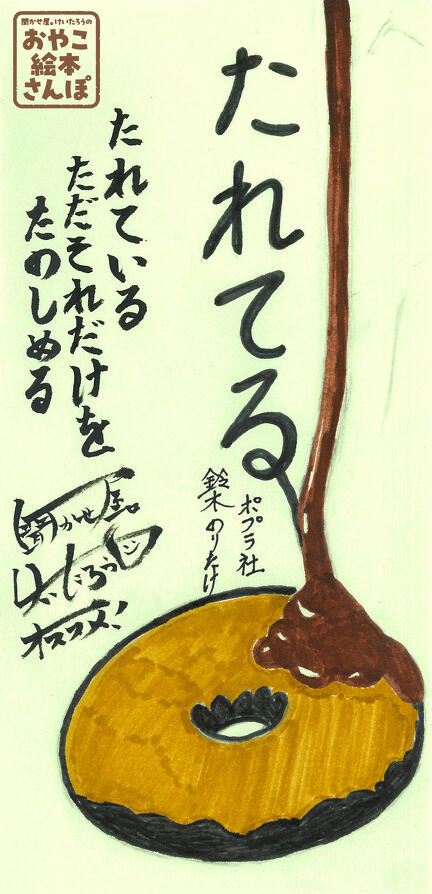 聞かせ屋。けいたろうの
おやこ
絵本
さんぽ
たれてる
ポプラ社
鈴木のりたけ
たれている
ただそれだけを
たのしめる
聞かせ屋。
けいたろう
オススメ!